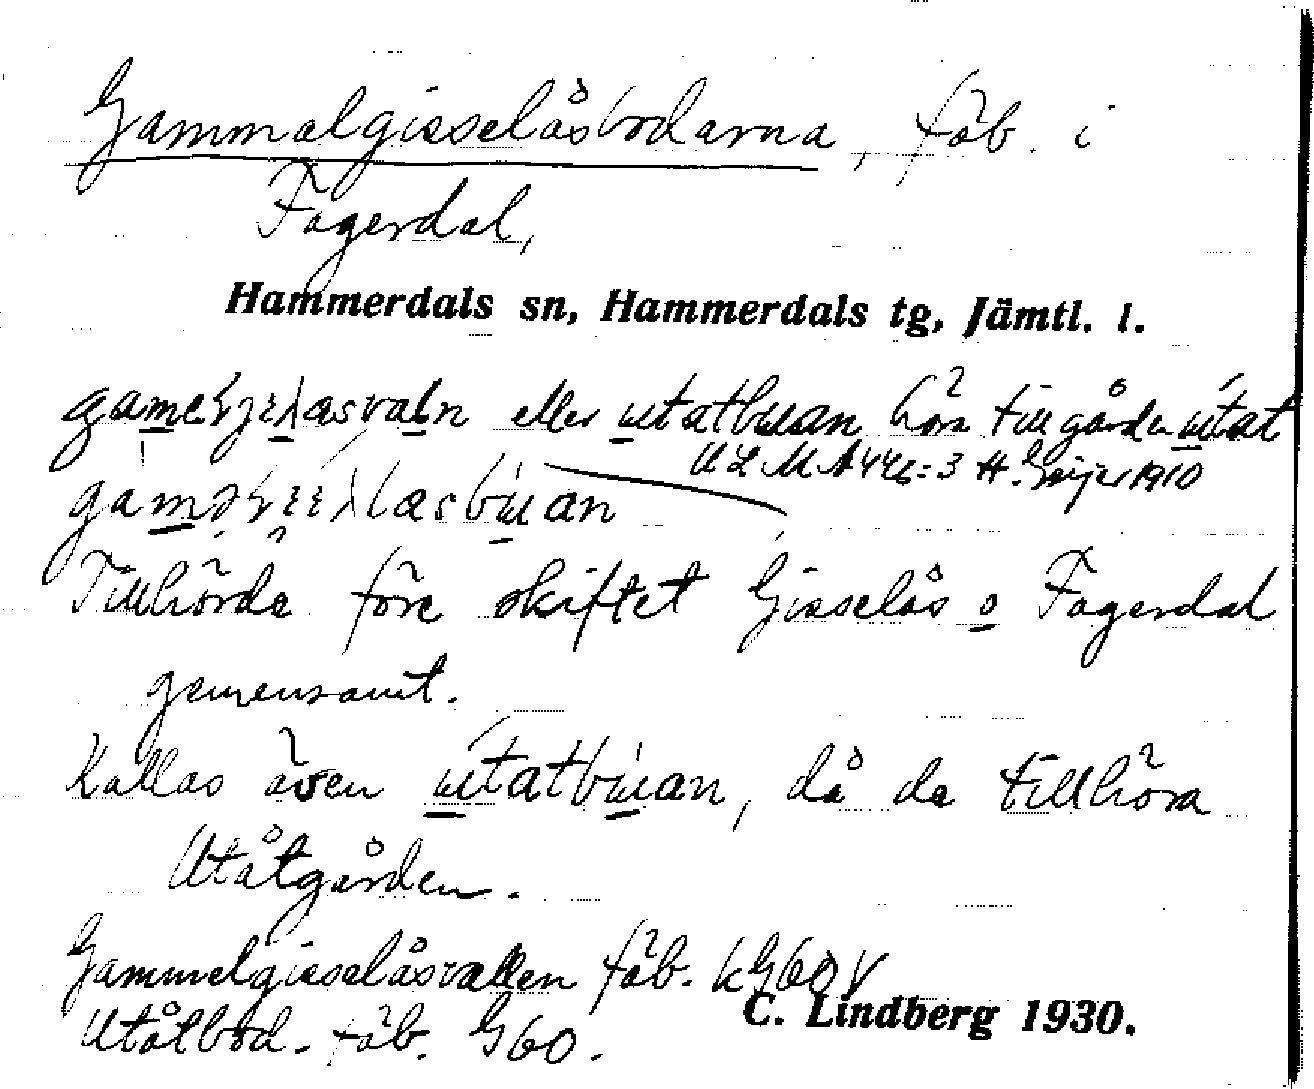 Gammalgisselåsbodarna, fäb. i
Fagerdal,
Hammerdals sn, Hammerdals tg, Jämtl. l.
eller utatbuan höra till gården utat
ULMA 446:3 H. Geijer 1910
Tillhörde före skiftet Gisselås o Fagerdal
gemensamt.
Kallas även utatbuan, då de tillhöra
Utåtgården.
Gammelgisselåsvallen fäb. kG60V
Utåtbod. fäb. G60.
C. Lindberg 1930.